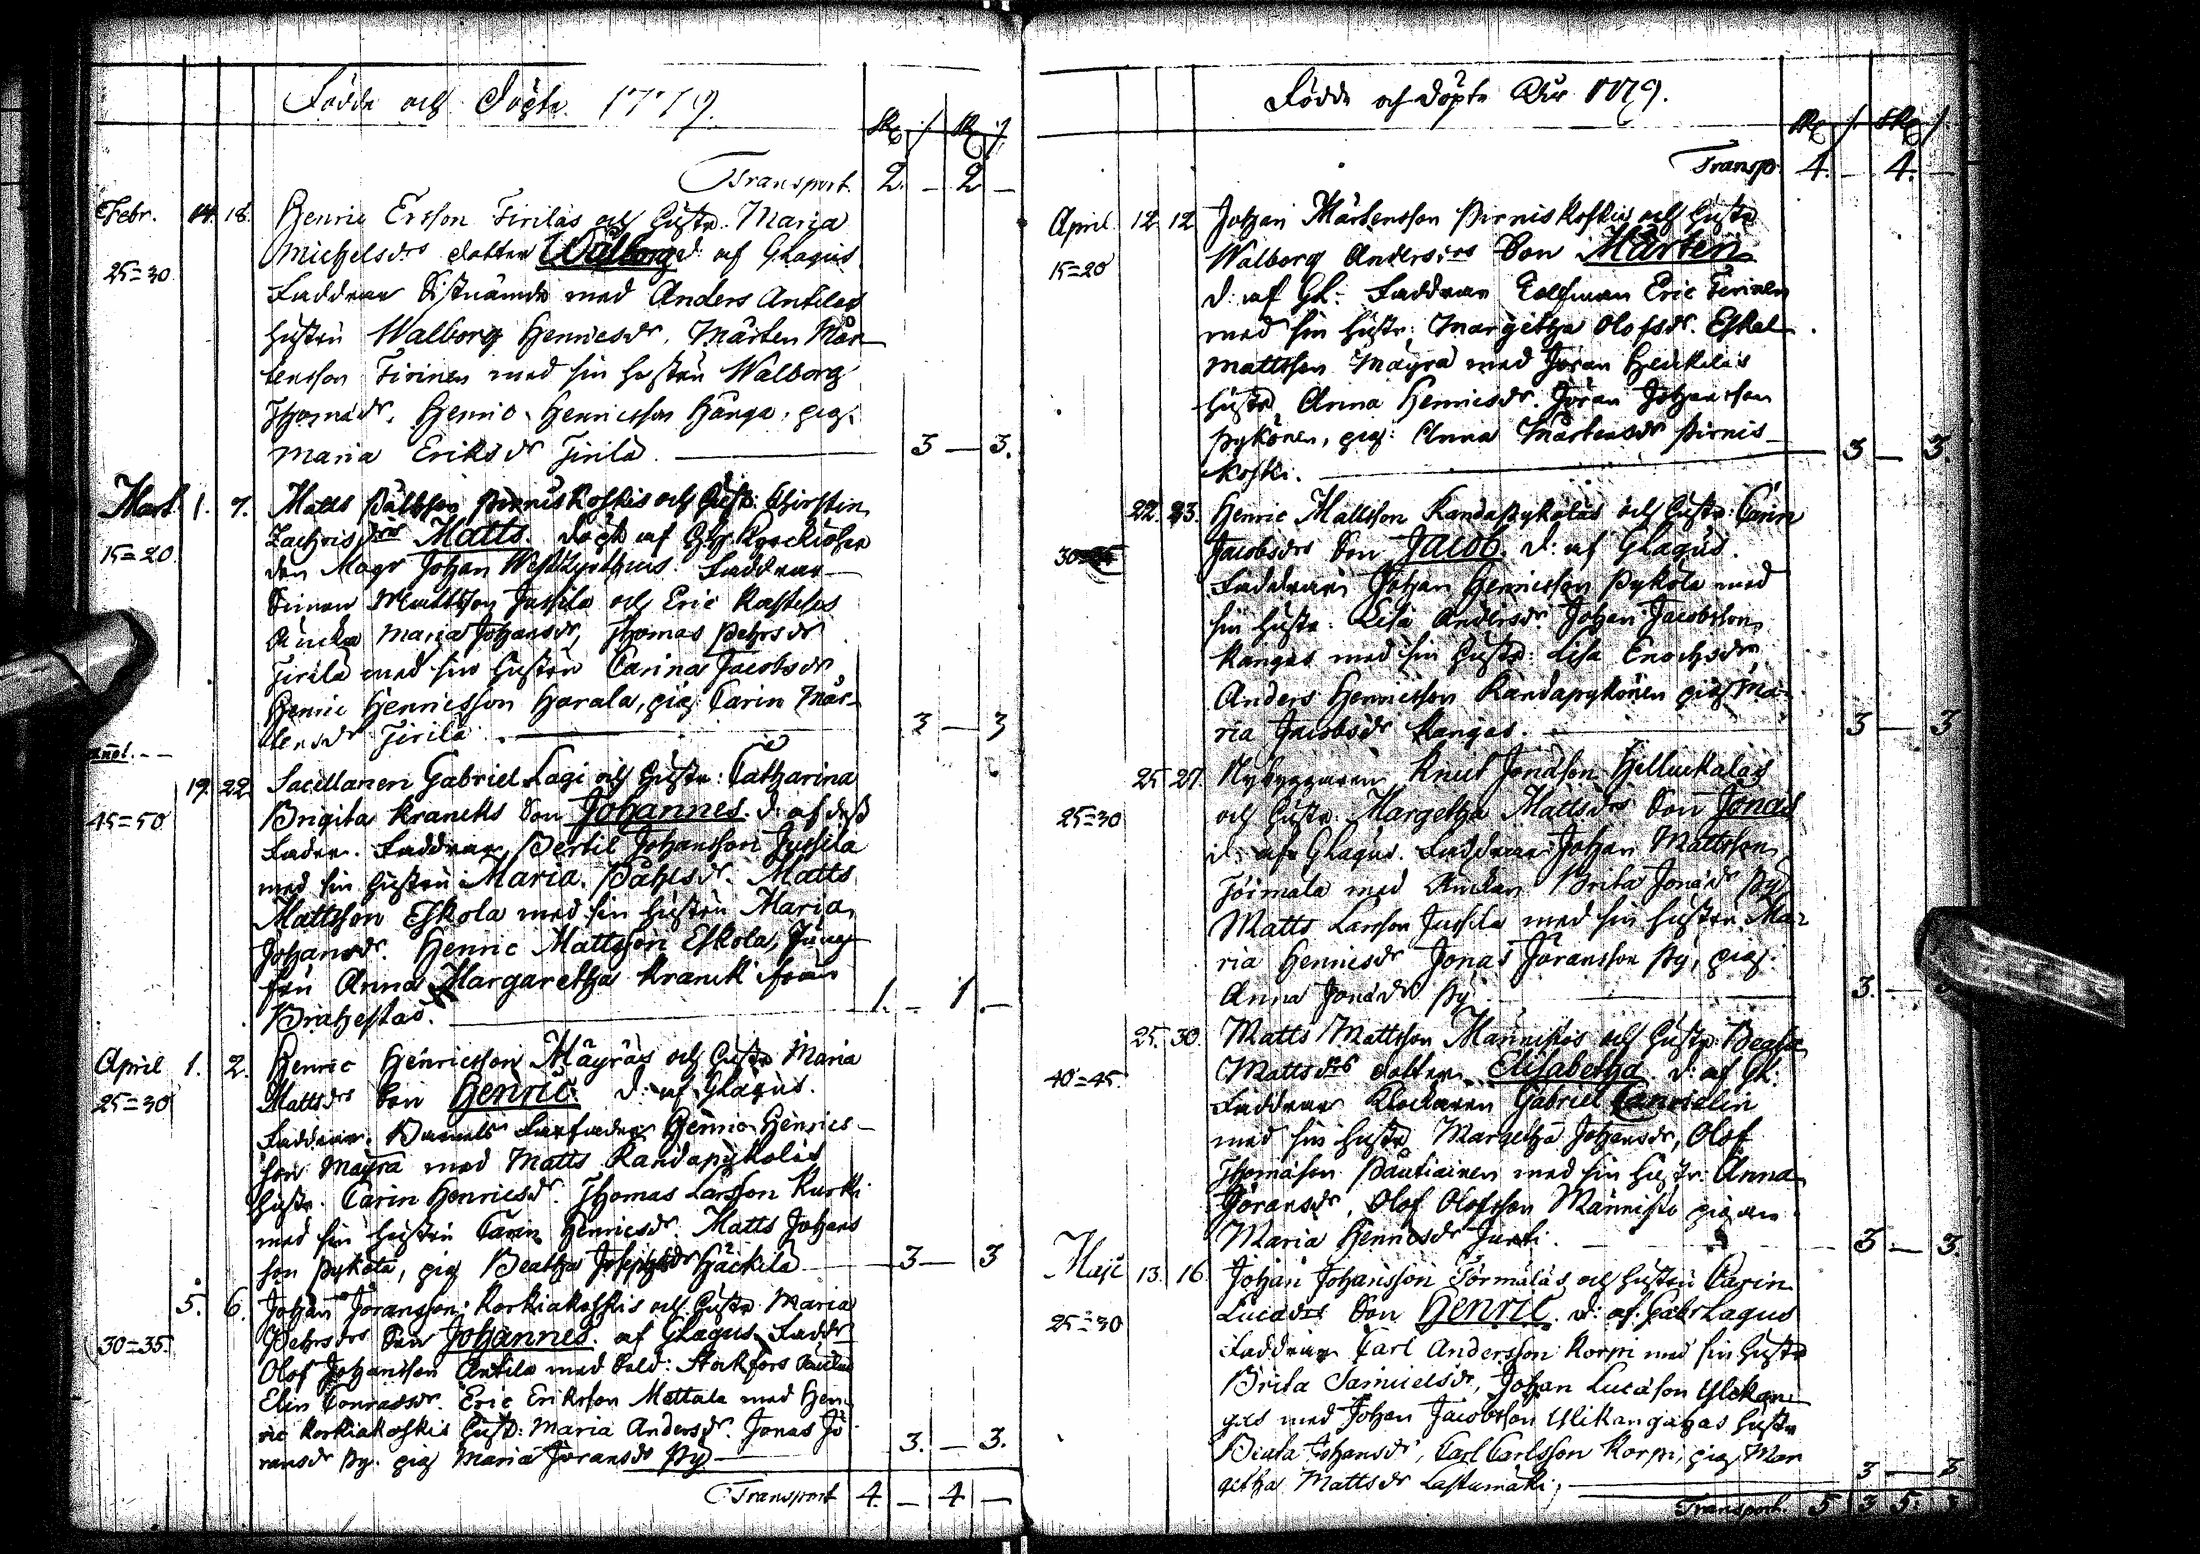 Födde och Döpte 1779.
Skr / Skr /
Transport. 2. – 2 –
Febr. 14. 18. Henric Ersson Tirilas och hustr. Maria
Michelsdrs dotter Walborg d: af GLagus
25=30
Faddrar Sistnämde med Anders Anttilas
hustru Walborg Henricsdr, Mårten Mår-
tensson Tirinen med sin hustru Walborg
Thomædr, Henric Henricsson Hänga, pig.
Maria Eriksdr Tirilä. 3 – 3.
Mart. 1. 7. Matts Påhlsson Pirneskoskis och hust: Chirstin
Zachrisdrs Matts. döpt af
15=20
den Magr Johan Westzynthius Faddrar
Simon Mattsson Jussila och Eric
Äncka Maria Johansdr, Thomas Pehrsdr
Tirila med sin hustru Carina Jacobsdr
Henric Henricsson Harala, pig: Carin Mår-
tensdr Tirilä. 3 – 3
19. 22 Sacellanen Gabriel Lagi och hustr: Catharina
45=50 Brigita Krancks Son Johannes. d: af dess
Fader. Faddrar, Bertil Johansson Jussila
med sin hustru Maria Påhlsdr. Matts
Mattsson Eskola med sin hustru Maria
Johansdr. Henric Mattsson Eskola, Jung-
fru Anna Margaretha Kranck från
Brahestad. 1. – 1 –
April 1. 2. Henric Henricsson Mäyräs och hustr Maria
25=30 Mattsdrs Son Henric. d: af GLagus.
Faddrar. Barnets Farfader Henric Henrics-
son Mäyrä med Matts Kandapykoläs
hustr. Carin Henricsdr. Thomas Larsson Kurki
med sin hustru Carin Henricsdr. Matts Johans
son Pyköla, pig Beatha Josephsdr Häckilä 3 – 3
5. 6. Johan Jöransson Korkiakoskis och hustr Maria
30=35. Pehrsdrs Son Johannes. af GLagus. Faddr
Olof Johansson Anttila med Sold: Storkfors
Elin Conradsdr. Eric Eriksson Mattala med Hen-
ric Korkiakoskis hustr: Maria Andersdr. Jonas Jö
ransdr Py. pig Maria Jöransdr Py 3. – 3.
Transport 4. – 4 –
Födde och Döpte Åhr 1779.
Skr /. Skr /.
Transp. 4. – 4. –
April 12 12 Johan Mårtensson Pirniskoskis och hustr
Walborg Andersdrs Son Mårten
15=20
d: af GL: Faddrar Tolfman Eric Tirinen
med sin hustr; Margetha Olofsdr. Eskel
Mattsson Mäyrä med Jöran Heickiläs
hustr Anna Henricsdr. Jöran Johansson
Pykönen, pig: Anna Mårtensdr Pirnis- 3 – 3.
koski.
22. 23. Henric Mattsson Kandapykoläs och hustr: Carin
30=35 Jacobsdrs Son Jacob. d: af GLagus.
Faddrar Johan Henricsson Pyköla med
sin hustr. Lisa Andersdr. Johan Jacobsson
Kangas med sin hustr: Lisa Enochsdr
Anders Henricsson Kandapykönen pig Ma-
ria Jacobsdr Kangas. 3 – 3
25 27 Nybyggaren Knut Jonæson Helluckalas
25=30 och hustr. Margetha Mattsdrs Son Jonas
d: af GLagus. Faddrar Johan Mattsson
Törmälä med Änckan Brita Jonædr Py
Matts Larsson Jussila med sin hustru Ma-
ria Henricsdr Jonas Jöransson Py, pig.
Anna Jonædr Py. 3. –
25. 30. Matts Mattsson Männistös och hustr: Beata
40=45. Mattsdrs dotter Elisabetha. d: af GL:
Faddrar Klockaren Gabriel
med sin hustr Margetha Johansdr, Olof
Thomæson Pautiainen med sin hustr: Anna
Göransdr, Olof Olofsson Männistö pigan
Maria Henricsdr Junti. 3 – 3.
Maji 13. 16. Johan Johansson Törmäläs och hustru Carin
25=30 Lucædrs Son Henric. d: af: Gabr Lagus
Faddrar Carl Andersson Korpi med sin hustr
Brita Samuelsdr, Johan Lucæson Ylikan-
gas med Johan Jacobsson Ylikangagas hustr
Beata Johansdr, Carl Carlsson Korpi, pig Mar
getha Mattsdr Lastumäki; 3 – 3
Transport. 5 3 5. 3